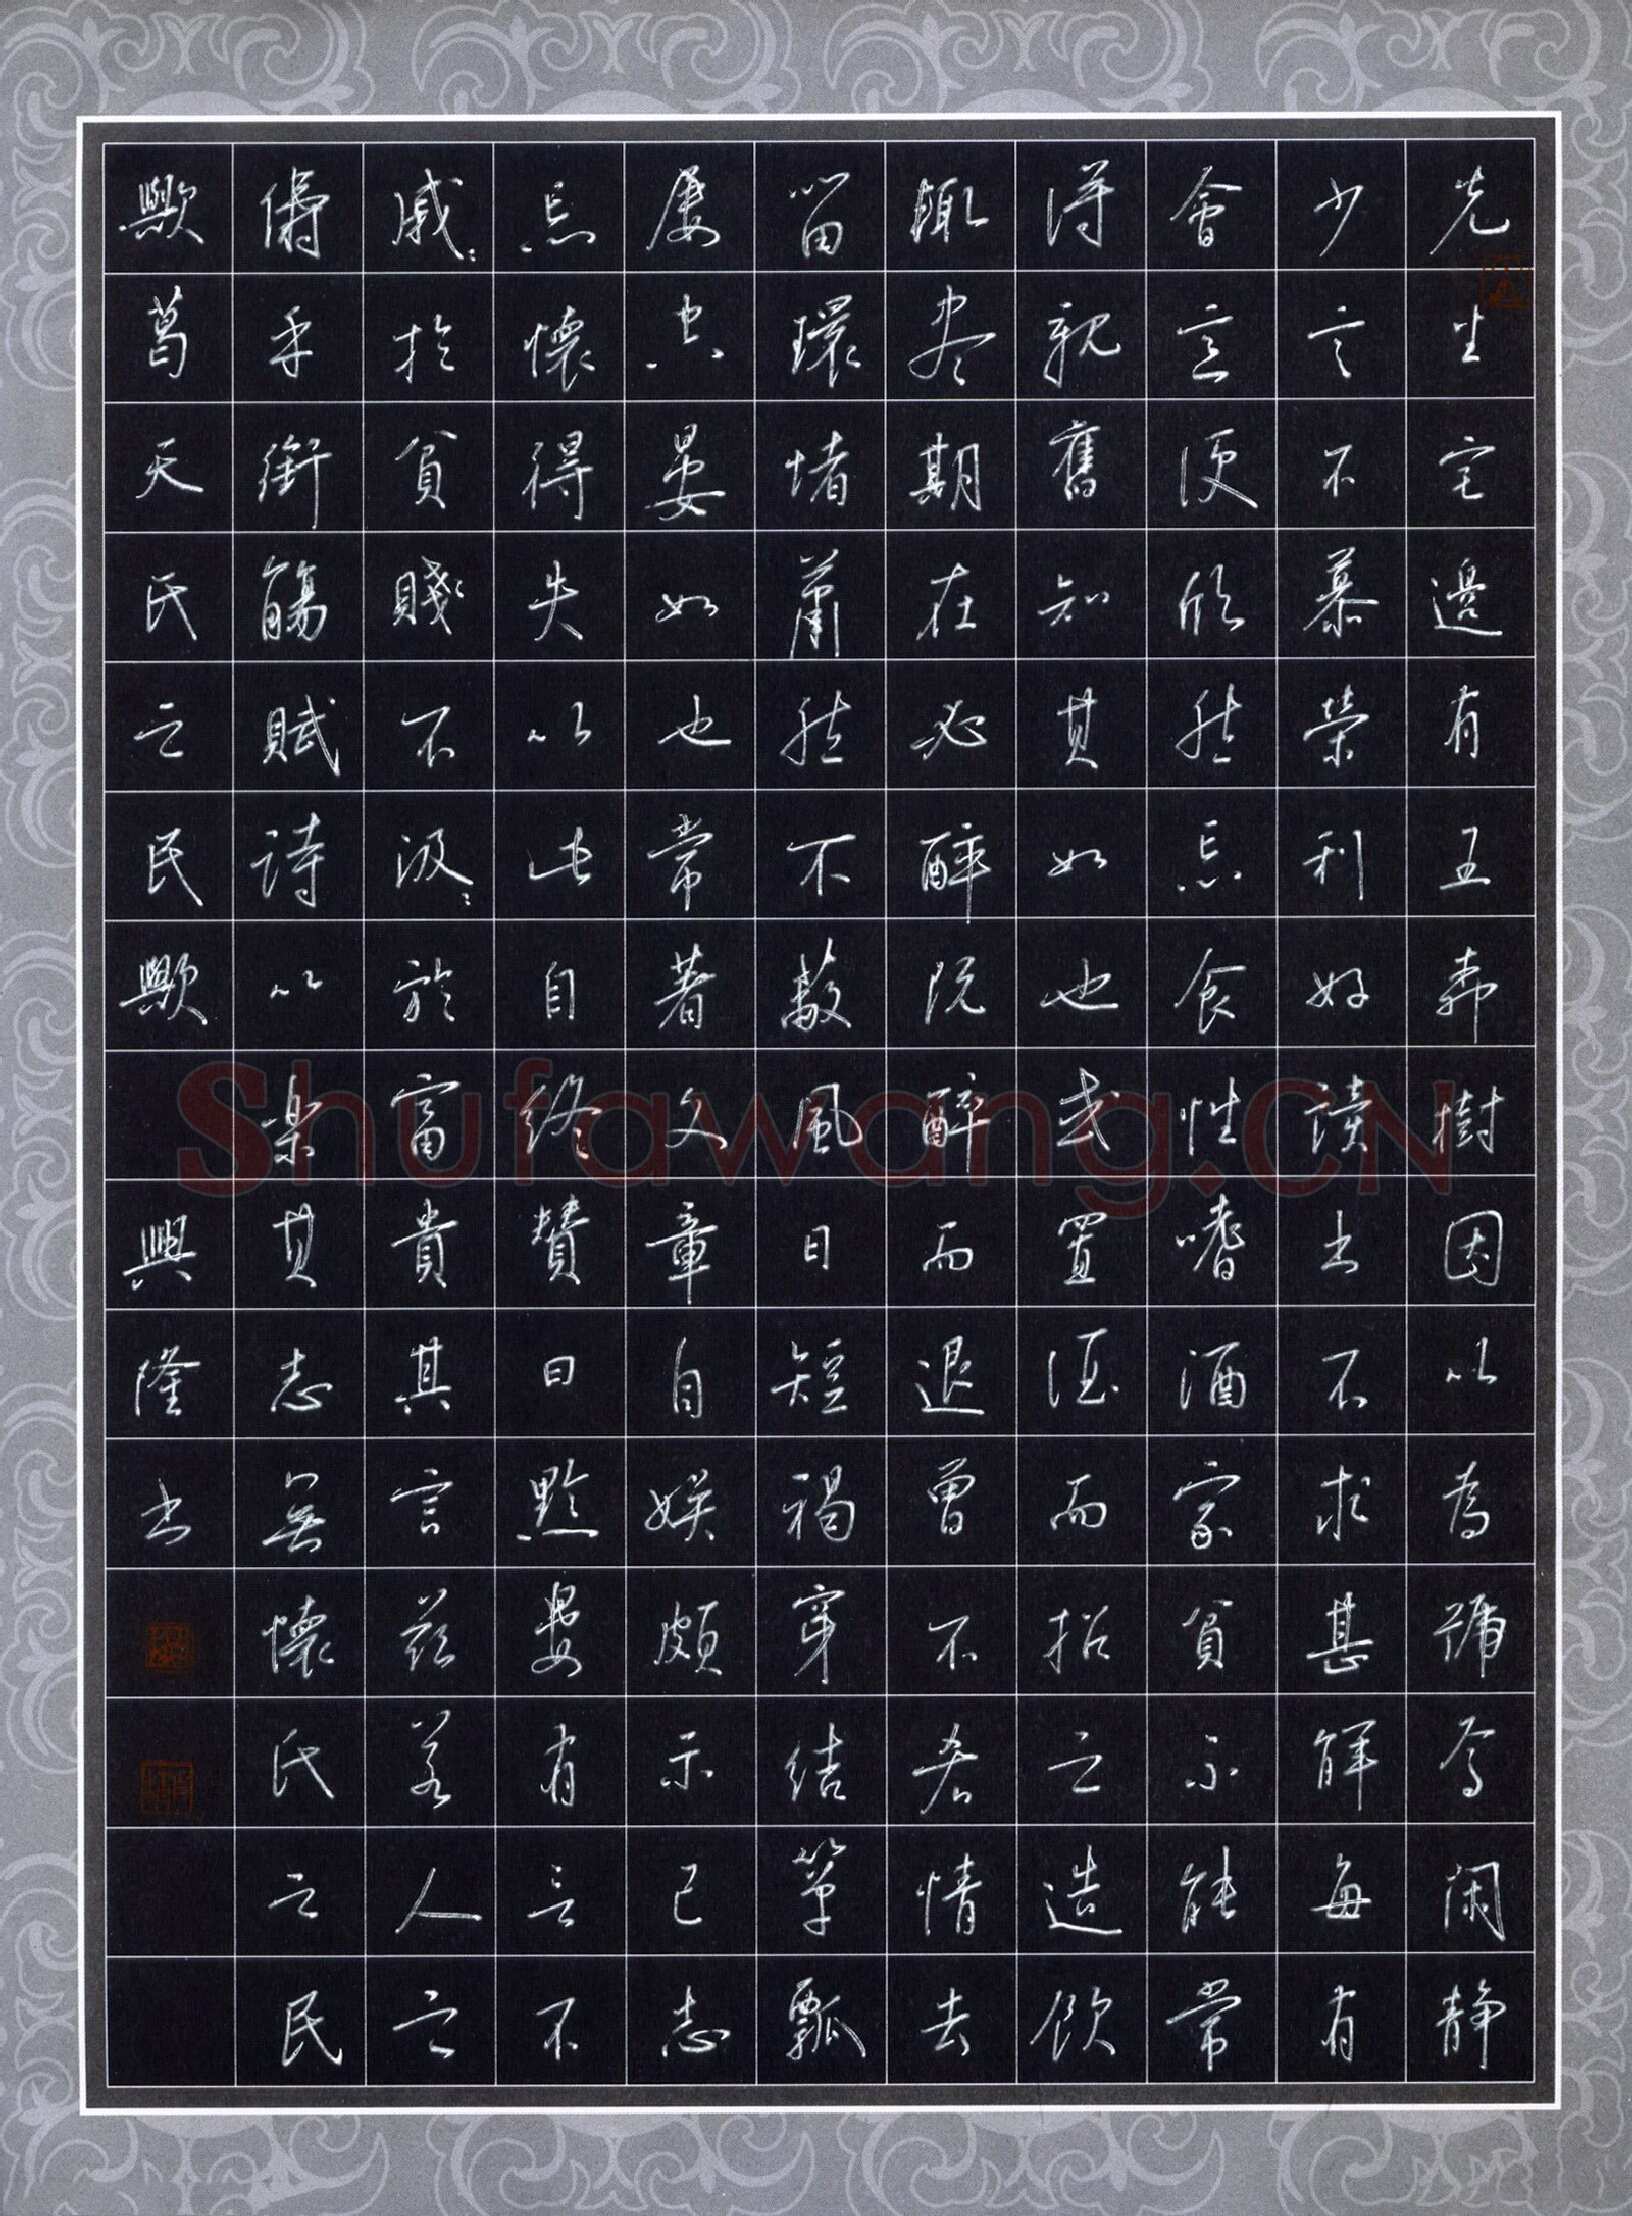 先生宅邊有五柳樹因以為號焉閑靜
少言不慕榮利好讀書不求甚解每有
會意便欣然忘食性嗜酒家貧不能常
得親舊知其如也或置酒而招之造飲
輒盡期在必醉既醉而退曾不吝情去
留環堵蕭然不蔽風日短褐穿結簞瓢
屢空晏如也常著文章自娛頗示己志
忘懷得失以此自終贊曰黔婁有言不
戚戚於貧賤不汲汲於富貴其言茲若人之
儔乎銜觴賦詩以樂其志無懷氏之民
歟葛天氏之民歟 興隆書
Shufawang.CN